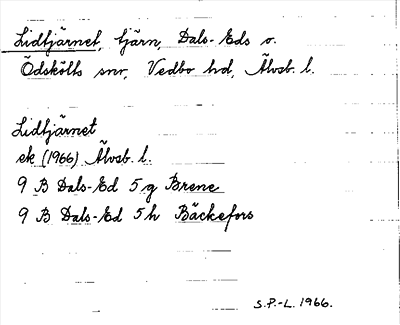 Lidtjärnet, tjärn, Dals-Eds o.
Ödskölts snr, Vedbo hd, Älvsb. l.
Lidtjärnet
ek (1966) Älvsb. l.
9 B Dals-Ed 5 g Brene
9 B Dals-Ed 5 h Bäckefors
S.P.-L. 1966.